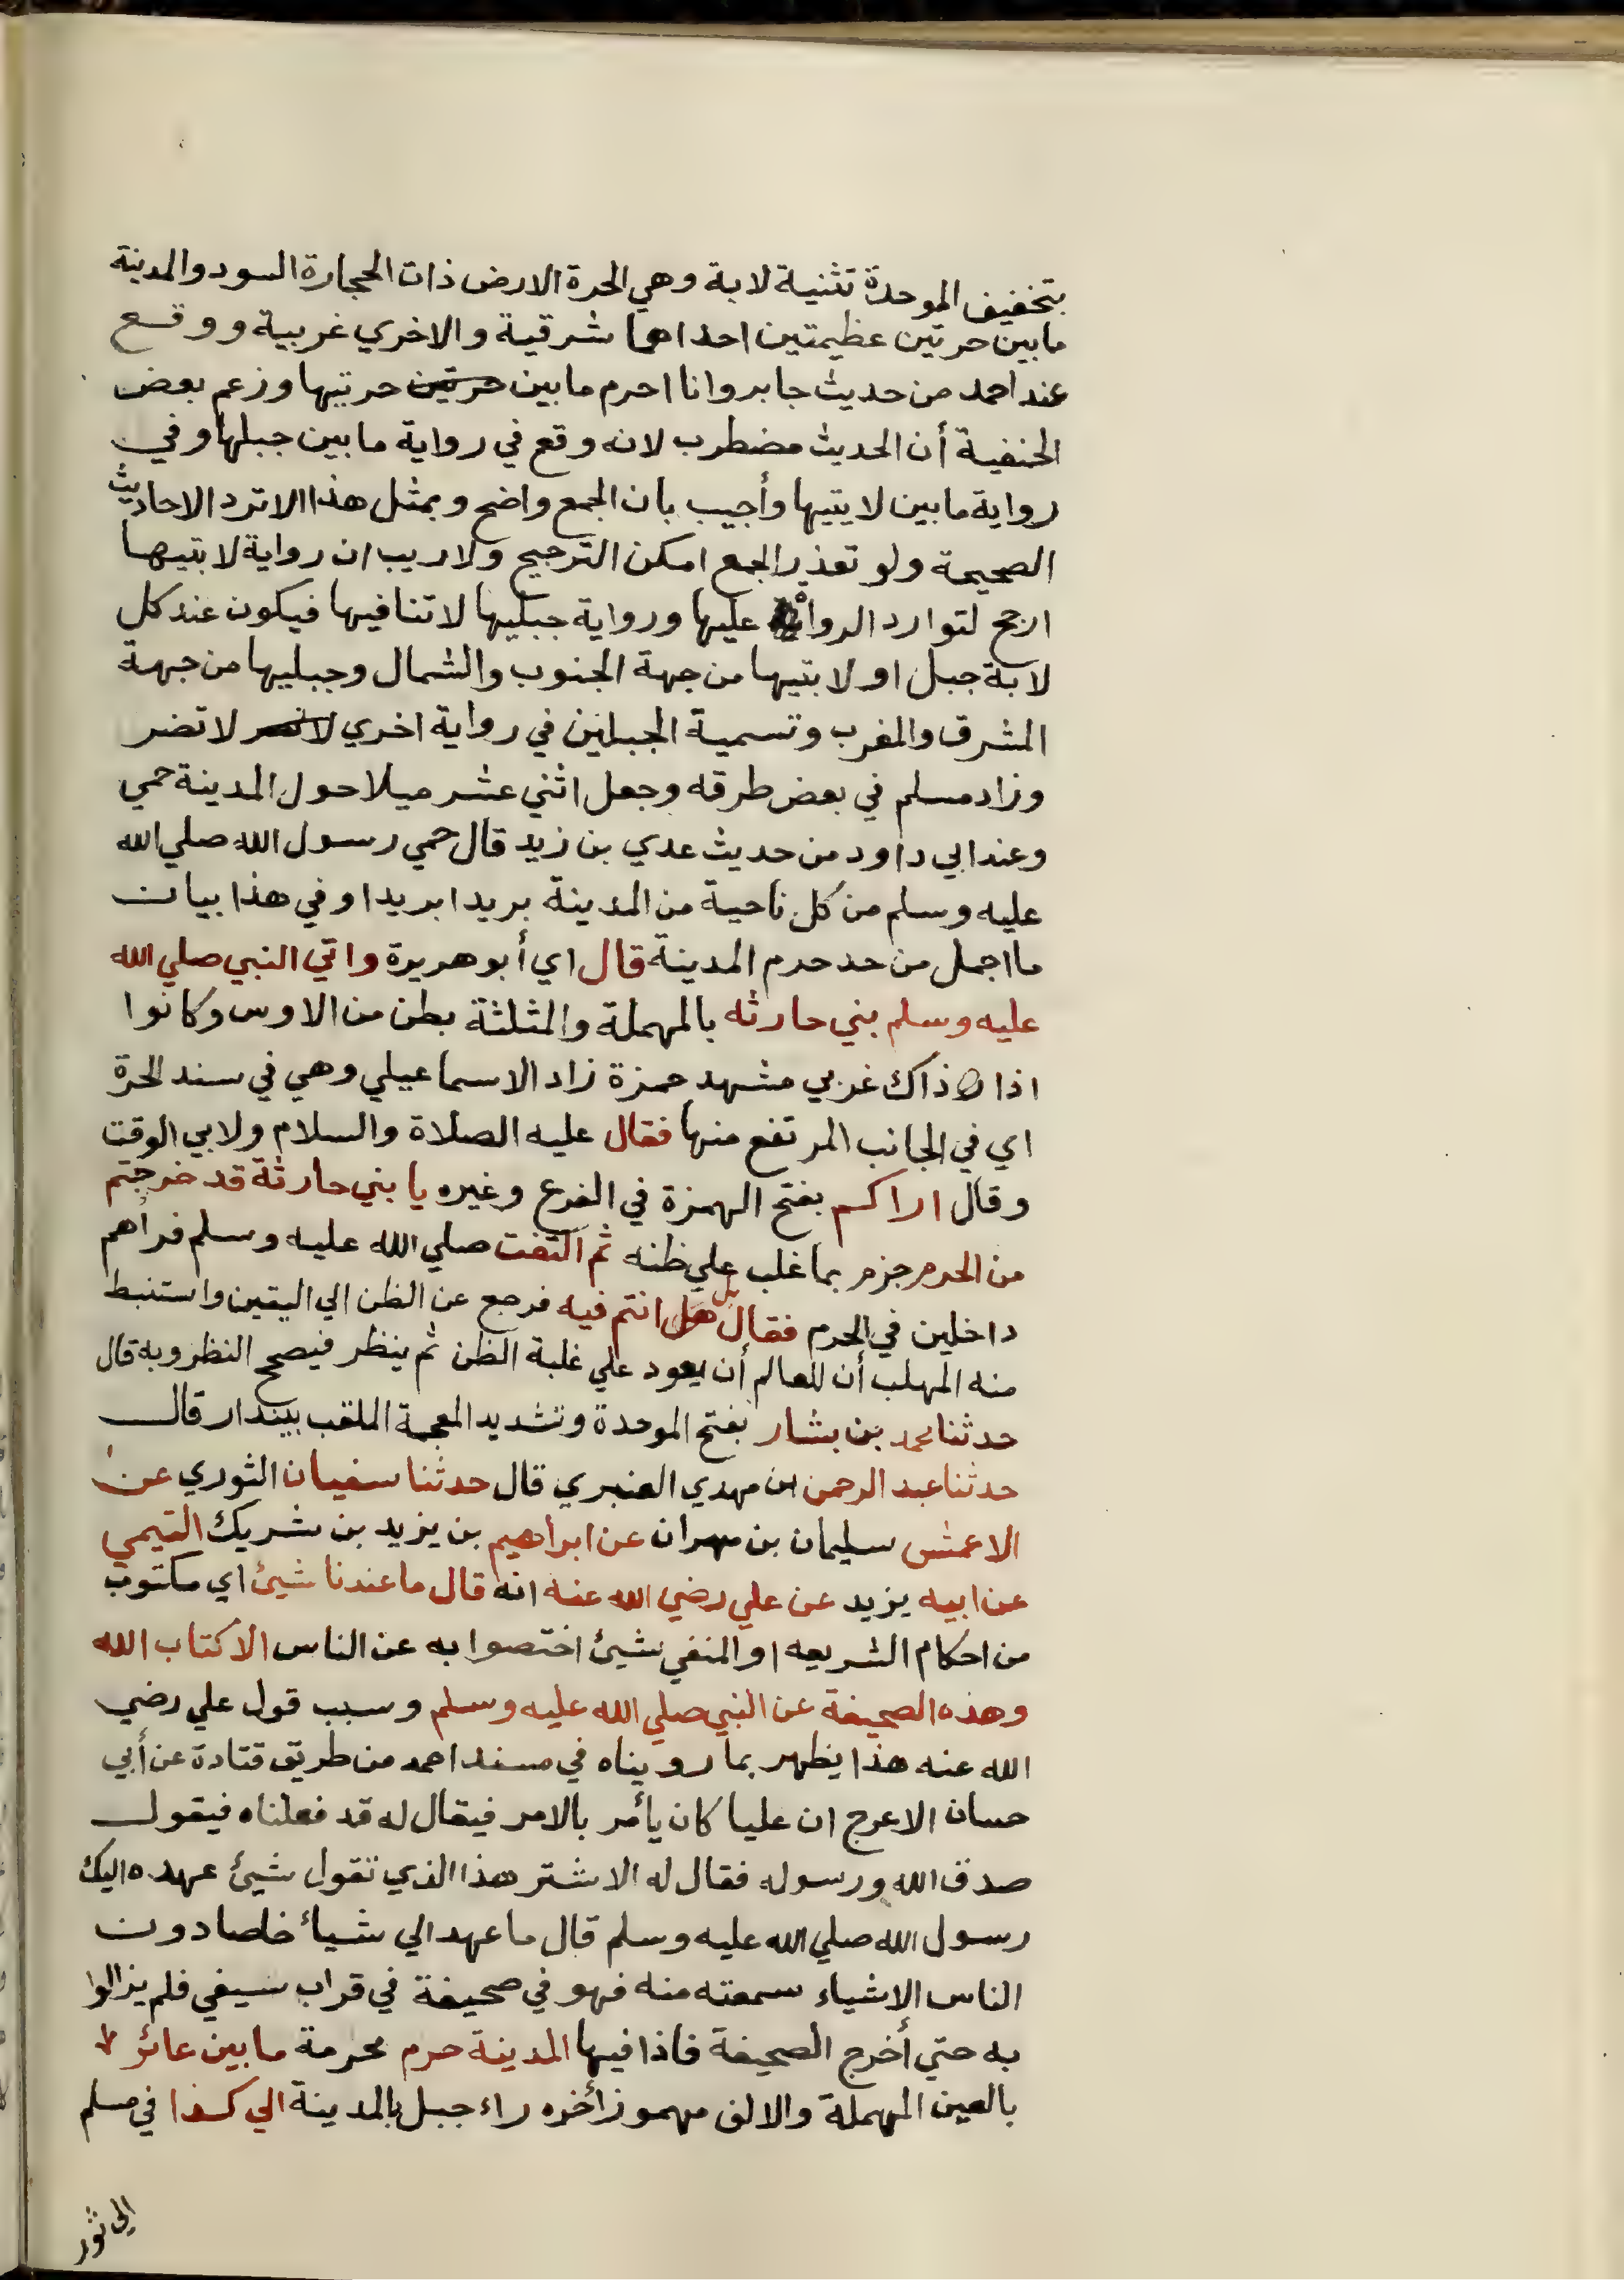 بتخفيف الموحدة تثنية لابة وهي الحرة الارض ذات الحجارة السود والمدينة
مابين حرتين عظيمتين احداهما شرقية والاخري غربية ووقع
عند احمد من حديث جابر وانا احرم مابين حرتين حرتيها وزعم بعض
الحنفية أن الحديث مضطرب لانه وقع في رواية مابين جبلها وفي
رواية مابين لابتيها وأجيب بان الجمع واضح وبمثل هذا الا ترد الاحاديث
الصحيحة ولو تعذر الجمع امكن الترجيح ولا ريب ان رواية لابتيها
ارجح لتوارد الرواه عليها ورواية جبليها لا تنافيها فيكون عند كل
لابة جبل او لابتيها من جهة الجنوب والشمال وجبليها من جهة
المشرق والمغرب وتسمية الجبلين في رواية اخري لا تضر لا تضر
وزاد مسلم في بعض طرقه وجعل اثني عشر ميلا حول المدينة حمي
وعند ابي داود من حديث عدي بن زيد قال حمي رسول الله صلي الله
عليه وسلم من كل ناحية من المدينة بريدا بريدا وفي هذا بيان
ما اجمل من حد حرم المدينة قال اي أبو هريرة واتي النبي صلي الله
عليه وسلم بني حارثه بالمهملة والمثلثة بطن من الاوس وكانوا
اذا ذاك غربي مشهد حمزة زاد الاسماعيلي وهي في سند الحرة
اي في الجانب المرتفع منها فقال عليه الصلاة والسلام ولابي الوقت
وقال اراكم بفتح الهمزة في الفرع وغيره يا بني حارثة قد خرجتم
من الحرم جزم بما غلب علي ظنه ثم التفت صلي الله عليه وسلم فراهم
داخلين في الحرم فقال بل هل انتم فيه فرجع عن الظن الي اليقين واستنبط
منه المهلب أن للعالم أن يعود علي غلبة الظن ثم ينظر فيصحح النظر وبه قال
حدثنا محمد بن بشار بفتح الموحدة وتشديد المعجمة الملقب ببندار قال
حدثنا عبد الرحمن ابن مهدي العنبري قال حدثنا سفيان الثوري عن
الاعمش سليمان بن مهران عن ابراهيم بن يزيد بن شريك التيمي
عن ابيه يزيد عن علي رضي الله عنه انه قال ما عندنا شيئ اي مكتوب
من احكام الشريعه او المنفي شيئ اختصوا به عن الناس الا كتاب الله
وهذه الصحيفة عن النبي صلي الله عليه وسلم وسبب قول علي رضي
الله عنه هذا يظهر بما رويناه في مسند احمد من طريق قتادة عن أبي
حسان الاعرج ان عليا كان يأمر بالامر فيقال له قد فعلناه فيقول
صدق الله ورسوله فقال له الاشتر هذا الذي تقول شيئ عهده اليك
رسول الله صلي الله عليه وسلم قال ما عهد الي شيأ خاصا دون
الناس الاشياء سمعته منه فهو في صحيفة في قراب سيفي فلم يزالوا
به حتي أخرج الصحيفة فاذا فيها المدينة حرم محرمة مابين عائر
بالعين المهملة والالف مهموز أخره راء جبل بالمدينة الي كذا في مسلم
الى ثور